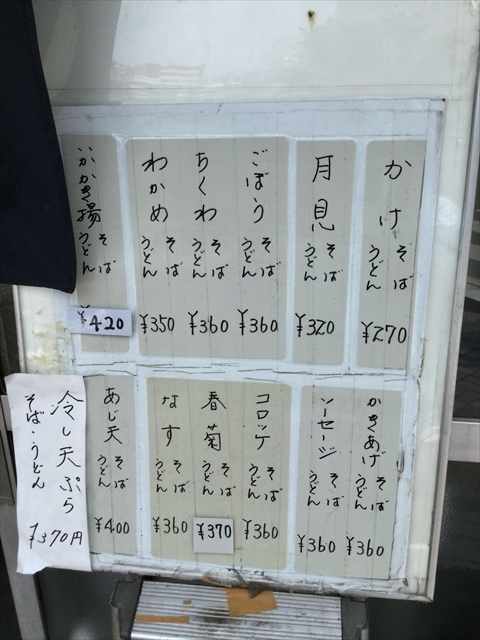 かけ そば うどん ¥270
月見 そば うどん ¥320
ごぼう そば うどん ¥360
ちくわ そば うどん ¥360
わかめ そば うどん ¥350
いかかき揚 そば うどん ¥420
かきあげ そば うどん ¥360
ソーセージ そば うどん ¥360
コロッケ そば うどん ¥360
春菊 そば うどん ¥370
なす そば うどん ¥360
あじ天 そば うどん ¥400
冷し天ぷら そば・うどん ¥370円